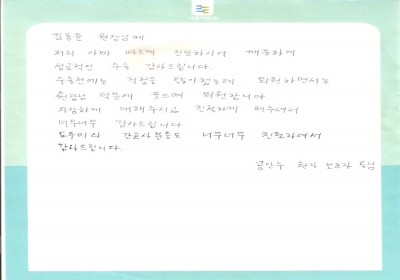 김동윤 원장님께
저희 아빠 빠르게 진료하시어 깨끗하게
성공적인 수술 감사드립니다.
수술전에는 걱정을 많이했는데 퇴원하면서는
원장님 덕분에 웃으며 퇴원합니다.
자상하게 대해주시고 친절하게 해주셔서
너무너무 감사드립니다.
도우미와 간호사분들도 너무너무 친절하셔서
감사드립니다.
환자 보호자 드림